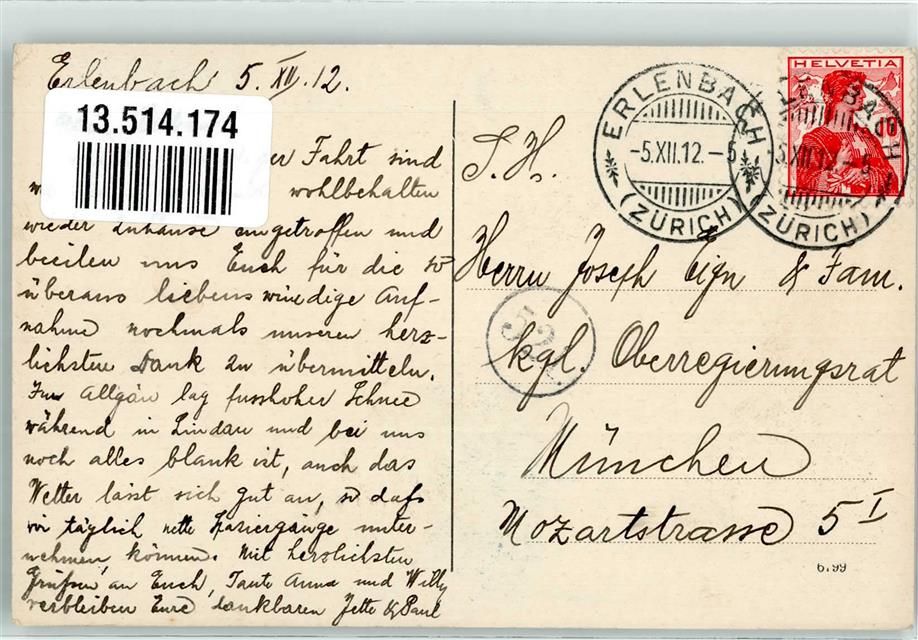 Erlenbach 5. XII. 12.
13.514.174
ger Fahrt sind
wohlbehalten
wieder zuhause eingetroffen und
beeilen uns Euch für die so
überaus liebenswürdige Auf-
nahme nochmals unseren herz-
lichsten Dank zu übermitteln.
Im Allgäu lag fusshoher Schnee
während in Lindau und bei uns
noch alles blank ist, auch das
Wetter lässt sich gut an, so dafs
wir täglich nette Spaziergänge unter-
nehmen können. Mit herzlichsten
Grüfsen an Euch, Tante Anna und Willy
verbleiben Eure dankbaren Jette & Paul
HELVETIA
ERLENBACH
-5.XII.12.-5
(ZÜRICH)
ERLENBACH
5.XII.12.-5
(ZÜRICH)
S. H.
Herrn Joseph & Fam.
kgl. Oberregierungsrat
München
Mozartstrasse 5 I
6199